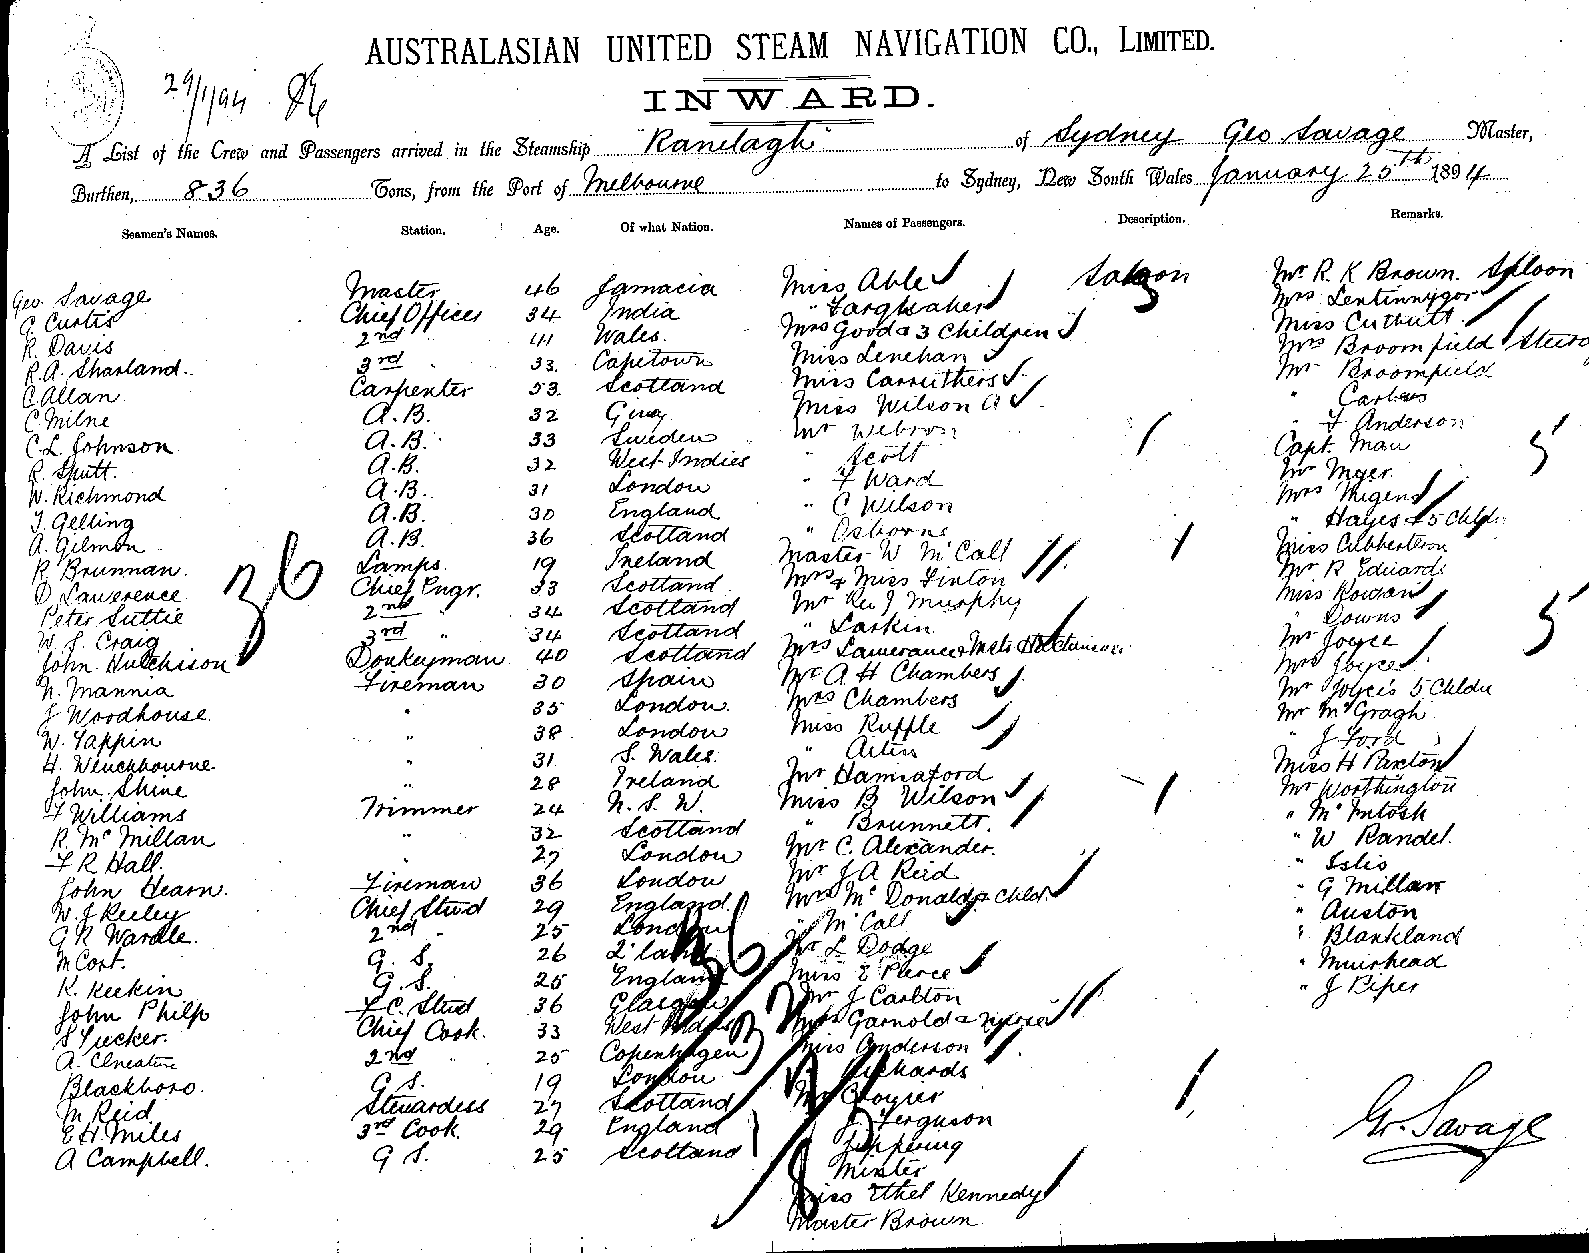 AUSTRALASIAN UNITED STEAM NAVIGATION CO., LIMITED.
29/1/94
INWARD.
A List of the Crew and Passengers arrived in the Steamship "Ranelagh" of Sydney Geo Savage Master,
Burthen, 836 Tons, from the Port of Melbourne to Sydney, New South Wales January 25th 1894
Seamen's Names. Station. Age. Of what Nation. Names of Passengers. Description. Remarks.
Geo. Savage Master 46 Jamacia Miss Able Saloon Mr R. K Brown. Saloon
C Curtis Chief Officer 34 India " Farquaher Mrs
R. Davis 2nd " 41 Wales. Mrs Good & 3 Children Miss Cuthutt
R. A. Sharland. 3rd " 33. Capetown Miss Lenehan Mrs Broomfield
C Allan Carpenter 53. Scotland Miss Carruthers Mr Broomfield
C Milne A. B. 32 Miss Wilson A "
C. L. Johnson A. B. 33 Sweden Mr " F Anderson
R. Sputt. A. B. 32 West Indies " Scott Capt. Man
W. Richmond A. B. 31 London " F Ward Mr Myer.
T. Gelling A. B. 30 England " C Wilson Mrs
A. Gilmon A. B. 36 Scotland " Osborne " Hayes & 5 Chldn
R Brunnan. Lamps. 19 Ireland Master W McCall Miss
D Lawerence Chief Engr. 33 Scotland Mrs & Miss Finton Mr R Edwards
Peter Suttie 2nd " 34 Scotland Mr Rev J Murphy Miss Rowan
W. S. Craig 3rd " 34 Scotland " Larkin " Downs
John Hutchison Donkeyman 40 Scotland Mrs Mr Joyce
N. Mannia Fireman 30 Spain Mr A H Chambers Mrs Joyce
J Woodhouse " 35 London. Mrs Chambers Mr Joyce's 5 Chldn
W. Tappin " 38 London Miss Ruffle Mr McGragh
H. Wenchbourne " 31 S. Wales. " " J Ford
John Shine " 28 Ireland Mr Hannaford Miss H Paxton
F Williams Trimmer 24 N. S. W. Miss B Wilson Mr Worthington
R. McMillan " 32 Scotland " Brunnett. " McIntosh
F R Hall. " 27 London Mr C. Alexander. " W Randel.
John Hearn. Fireman 36 London Mr J A Reid " Islis
W. J Keeley Chief Stwd 29 England Mrs McDonald & Chldn " G Millar
G R Wardle. 2nd " 25 London " McCall " Auston
M Cort. G. S. 26 Q'land Mr L Dodge " Blankland
K. Keekin G. S. 25 England Miss E Pierce " Muirhead
John Philp F. C. Stwd 36 Glasgow Mr J Carlton " J Piper
S Tucker. Chief Cook. 33 West Indies Mrs Garnold &
A. 2nd " 25 Copenhagen Miss Anderson
Blackboro. G S. 19 London " Richards
M Reid Stewardess 27 Scotland Mr
E H. Miles 3rd Cook. 29 England J. Ferguson
A Campbell. G S. 25 Scotland
Minter
Miss Ethel Kennedy
Master Brown
36
Geo. Savage